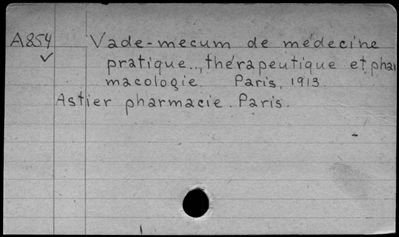 A854 Vade-mecum de médecine
pratique.., thérapeutique et phar
macologie. Paris, 1913.
Astier pharmacie. Paris.